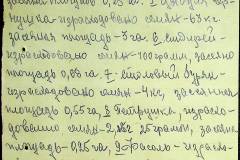 засеяно площадь 0,25 га. 5
израсходовано семян - 63 кг.
засеяна площадь - 3 га. 6
израсходовано семян - 100 грамм, засеяно
площадь 0,08 га. 7 - столовый бурак
израсходовано семян - 4 кг, засеянная
площадь 0,55 га, 8 Петрушка, израсхо-
довано семян - 2 кг 25 грамм, засеяна
площадь - 0,25 га, 9 фасоль - израсхо-